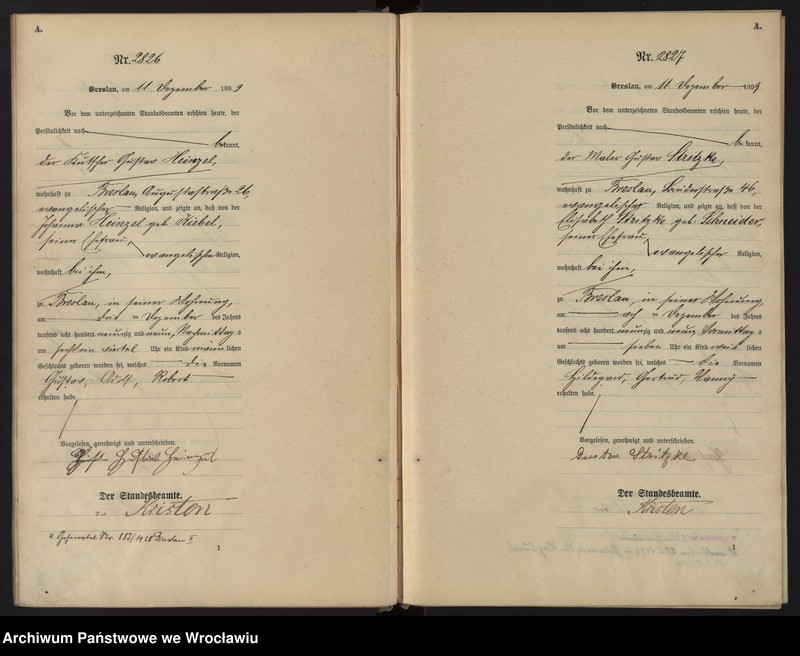 A.
Nr. 2826
Breslau, am 11 Dezember 1899
Vor dem unterzeichneten Standesbeamten erschien heute, der
Persönlichkeit nach
bekannt,
der Kutscher Gustav Heinzel,
wohnhaft zu Breslau, Augustastraße 26,
evangelischer Religion, und zeigte an, daß von der
Johanna Heinzel geb. Hübel,
seiner Ehefrau,
evangelischer Religion,
wohnhaft bei ihm,
zu Breslau, in seiner Wohnung,
am ten Dezember des Jahres
tausend acht hundert neunzig und neun, Nachmittags
um viertel Uhr ein Kind männlichen
Geschlechts geboren worden sei, welches die Vornamen
Gustav, Adolf, Robert
erhalten habe.
Vorgelesen, genehmigt und unterschrieben.
Gustav Heinzel
Der Standesbeamte.
Kristen
1
A.
Nr. 2827
Breslau, am 11 Dezember 1899
Vor dem unterzeichneten Standesbeamten erschien heute, der
Persönlichkeit nach
bekannt,
der Maler Gustav Stritzke,
wohnhaft zu Breslau, Bruderstraße 46,
evangelischer Religion, und zeigte an, daß von der
Elisabeth Stritzke geb. Schneider,
seiner Ehefrau,
evangelischer Religion,
wohnhaft bei ihm,
zu Breslau, in seiner Wohnung,
am ten Dezember des Jahres
tausend acht hundert neunzig und neun, Vormittags
um sieben Uhr ein Kind weiblichen
Geschlechts geboren worden sei, welches die Vornamen
Hildegard, Gertrud, Nanny
erhalten habe.
Vorgelesen, genehmigt und unterschrieben.
Gustav Stritzke
Der Standesbeamte.
Kristen
1
Archiwum Państwowe we Wrocławiu